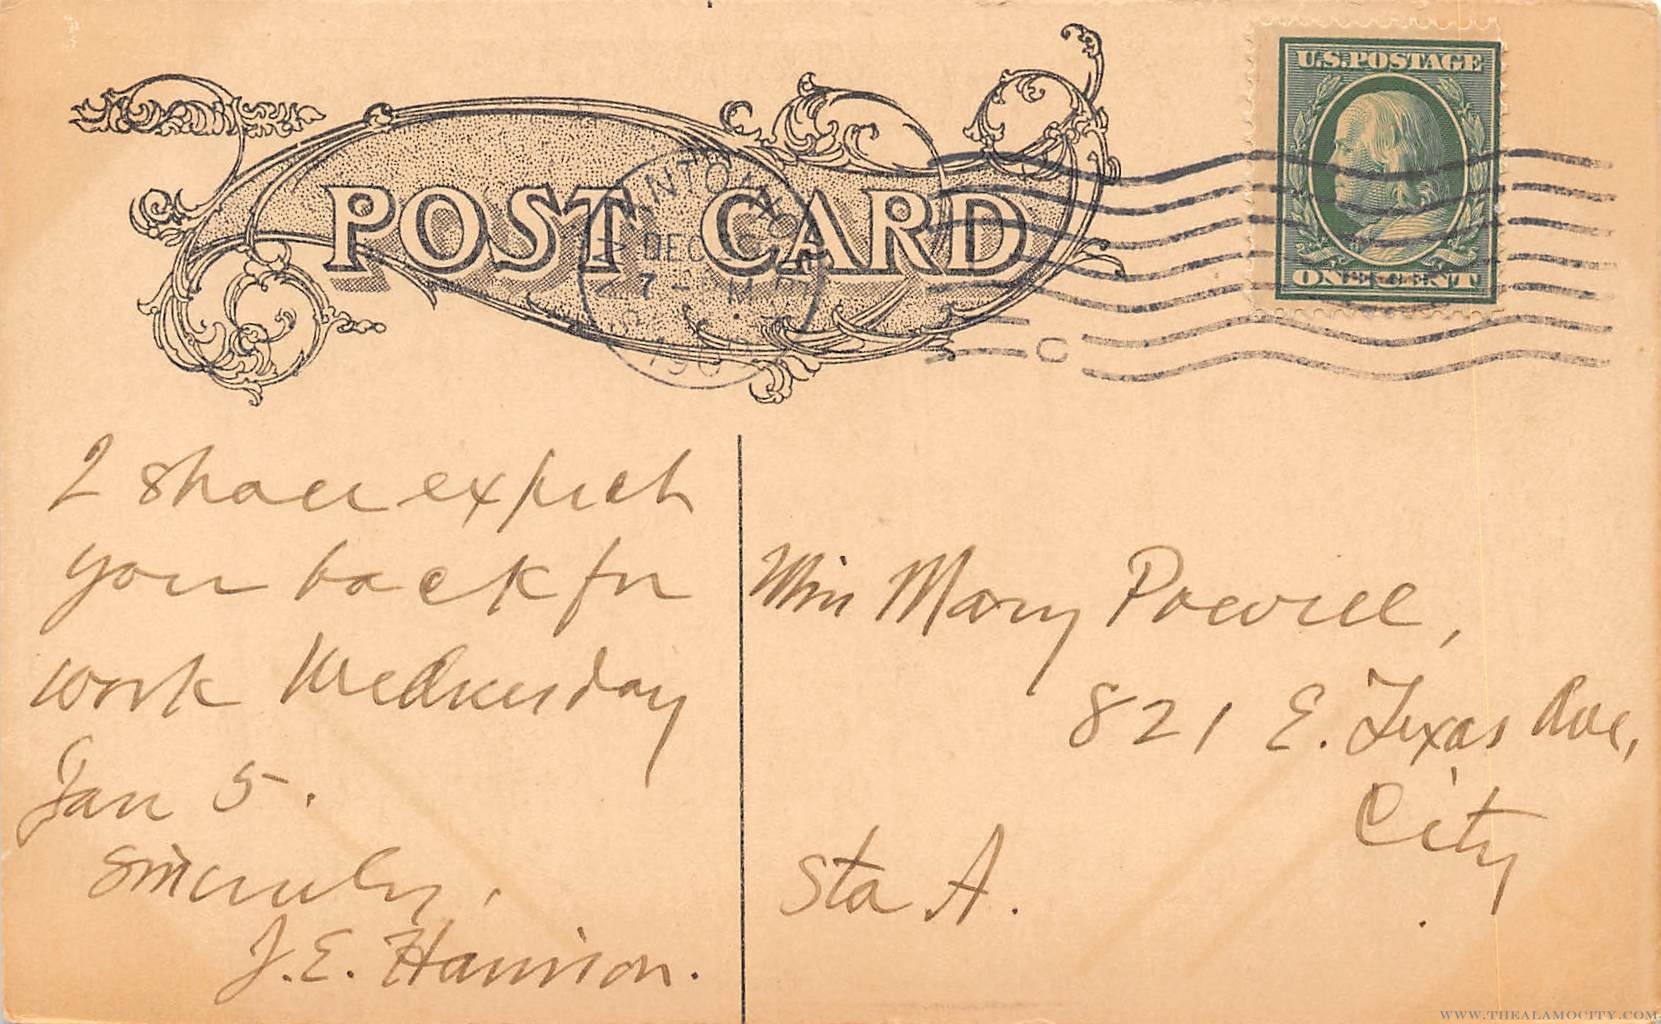 POST CARD
U.S. POSTAGE
ONE CENT
ANTONIO
DEC
7 - M
190
C
I shall expect
you back for
work Wednesday
Jan 5.
Sincerely,
J. E. Harrison.
Miss Mary Powell,
821 E. Texas Ave,
City
Sta A.
WWW.THEALAMOCITY.COM